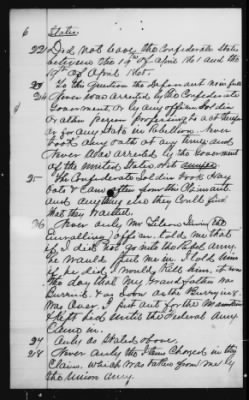 6 States
22 Did not leave the Confederate States
between the 19th of April 1861 and the
19th of April 1865.
23 To this Question the Deponent says
24 Never was arrested by the Confederate
Government or by any officer Soldier
or other person professing to act therefor
or for any State in Rebellion. Never
took any oath at any time and
Never was arrested by the Government
of the United States
25 The Confederate Soldiers took Hay
Oats & Corn often from the Claimant
and anything else they could find
that they wanted.
26 Never only Mr
Enrolling officer told me that
if I did not go into the Rebel Army
he would put me in. I told him
if he did I would kill him. it was
the day that My Grandfather was
Burried. & as soon as the Burrying
was over I put out for the Mountain
& kept hid until the Federal Army
Came in.
27 Only as Stated above.
28 Never only the Items Charged in this
Claim. which was taken from me by
the Union Army.